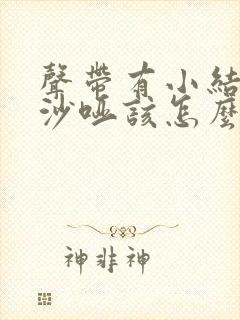 聲帶有小結
沙啞該怎麼
神非神